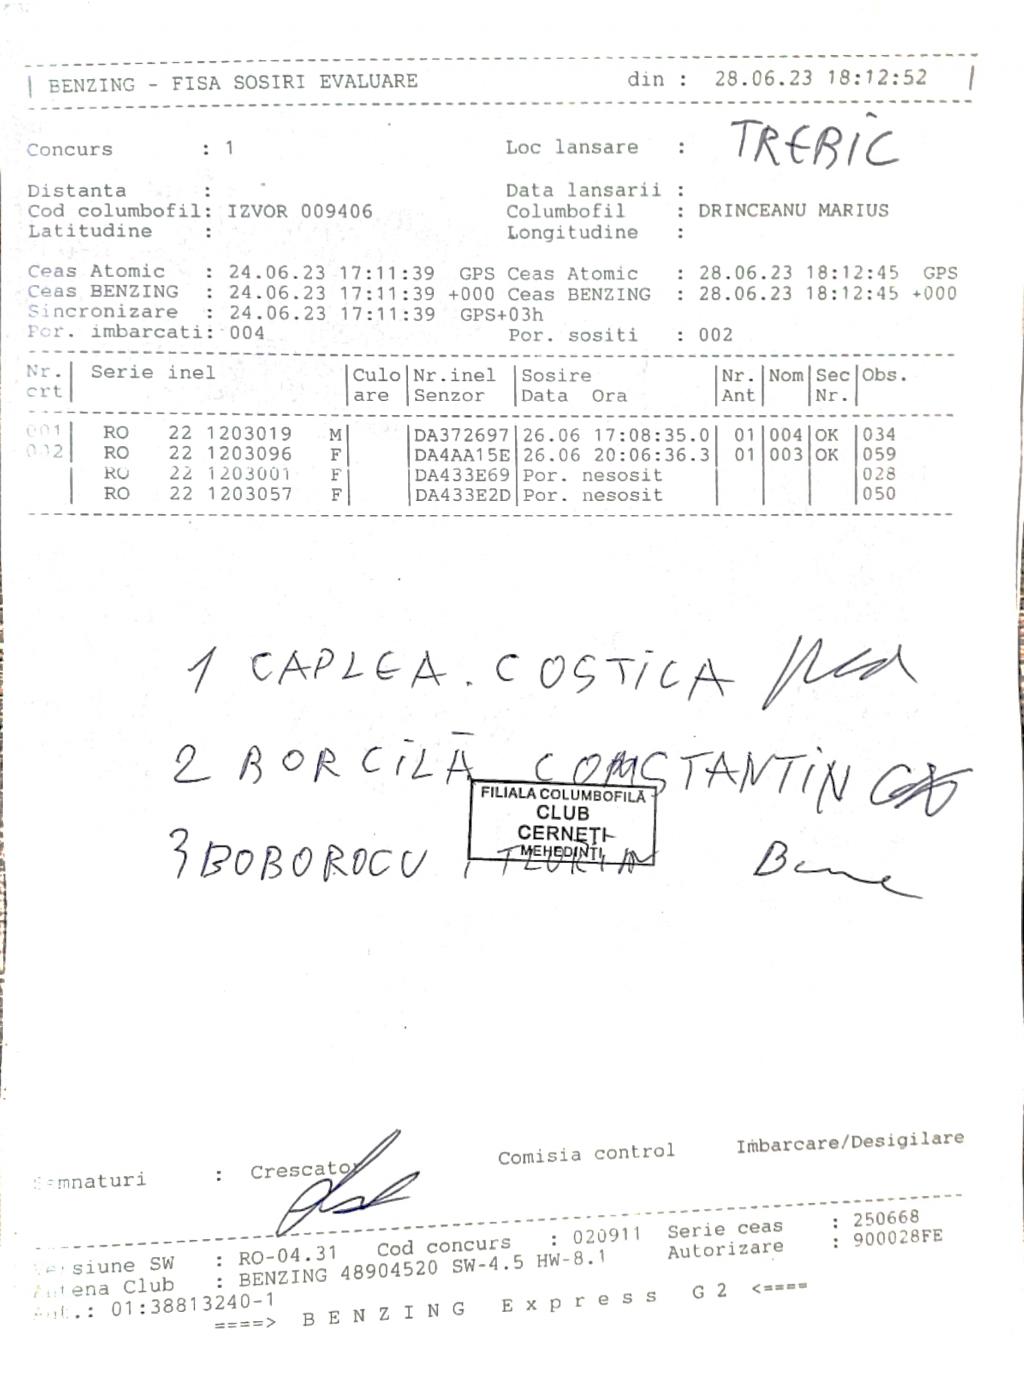 BENZING - FISA SOSIRI EVALUARE din : 28.06.23 18:12:52
Concurs : 1 Loc lansare : TREBIC
Distanta : Data lansarii :
Cod columbofil: IZVOR 009406 Columbofil : DRINCEANU MARIUS
Latitudine : Longitudine :
Ceas Atomic : 24.06.23 17:11:39 GPS Ceas Atomic : 28.06.23 18:12:45 GPS
Ceas BENZING : 24.06.23 17:11:39 +000 Ceas BENZING : 28.06.23 18:12:45 +000
Sincronizare : 24.06.23 17:11:39 GPS+03h
Por. imbarcati: 004 Por. sositi : 002
Nr. Serie inel Culo Nr.inel Sosire Nr. Nom Sec Obs.
crt are Senzor Data Ora Ant Nr.
001 RO 22 1203019 M DA372697 26.06 17:08:35.0 01 004 OK 034
002 RO 22 1203096 F DA4AA15E 26.06 20:06:36.3 01 003 OK 059
RO 22 1203001 F DA433E69 Por. nesosit 028
RO 22 1203057 F DA433E2D Por. nesosit 050
1 CAPLEA. COSTICA
2 BORCILĂ CONSTANTIN
FILIALA COLUMBOFILĂ
CLUB
CERNEȚI
MEHEDINȚI
3 BOBOROCU FLORIN
Semnaturi : Crescator Comisia control Imbarcare/Desigilare
Versiune SW : RO-04.31 Cod concurs : 020911 Serie ceas : 250668
Antena Club : BENZING 48904520 SW-4.5 HW-8.1 Autorizare : 900028FE
Ant.: 01:38813240-1
====> B E N Z I N G E x p r e s s G 2 <====